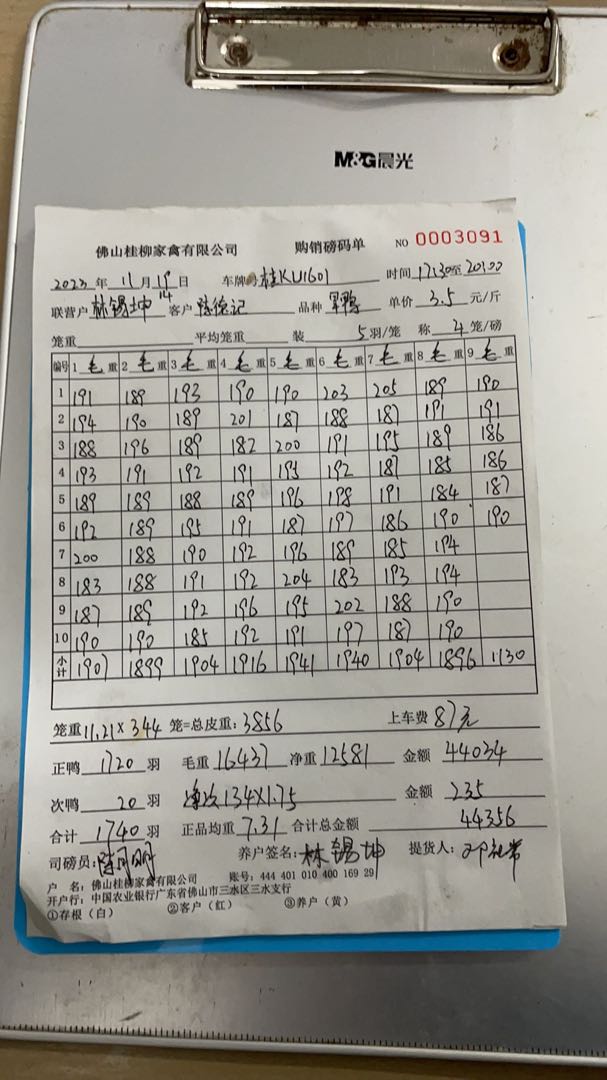 M&G晨光
佛山桂柳家禽有限公司 购销磅码单 NO 0003091
2023年11月19日 14 车牌号桂KU1601 时间17:30至20:00
联营户林锡坤 客户陈徐记 品种 单价3.5元/斤
笼重 平均笼重 装5羽/笼 称4笼/磅
编号 1毛重 2毛重 3毛重 4毛重 5毛重 6毛重 7毛重 8毛重 9毛重
1 191 189 193 190 190 203 205 189 190
2 194 190 189 201 187 188 187 191 191
3 188 196 189 182 200 191 195 189 186
4 193 191 192 191 195 192 187 185 186
5 189 189 188 189 196 198 191 184 187
6 192 189 195 191 187 197 186 190 190
7 200 188 190 192 196 189 185 194
8 183 188 191 192 204 183 193 194
9 187 189 192 196 195 202 188 190
10 190 190 185 192 191 197 187 190
小计 1907 1899 1904 1916 1941 1940 1904 1896 1130
笼重11.21×344笼=总皮重:3856 上车费87元
正鸭1720羽 毛重16437 净重12581 金额44034
次鸭20羽 净次134×1.75 金额235
合计1740羽 正品均重7.31 合计总金额44356
司磅员: 养户签名:林锡坤 提货人:
户 名:佛山桂柳家禽有限公司 账号:444 401 010 400 169 29
开户行:中国农业银行广东省佛山市三水区三水支行
①存根(白) ②客户(红) ③养户(黄)